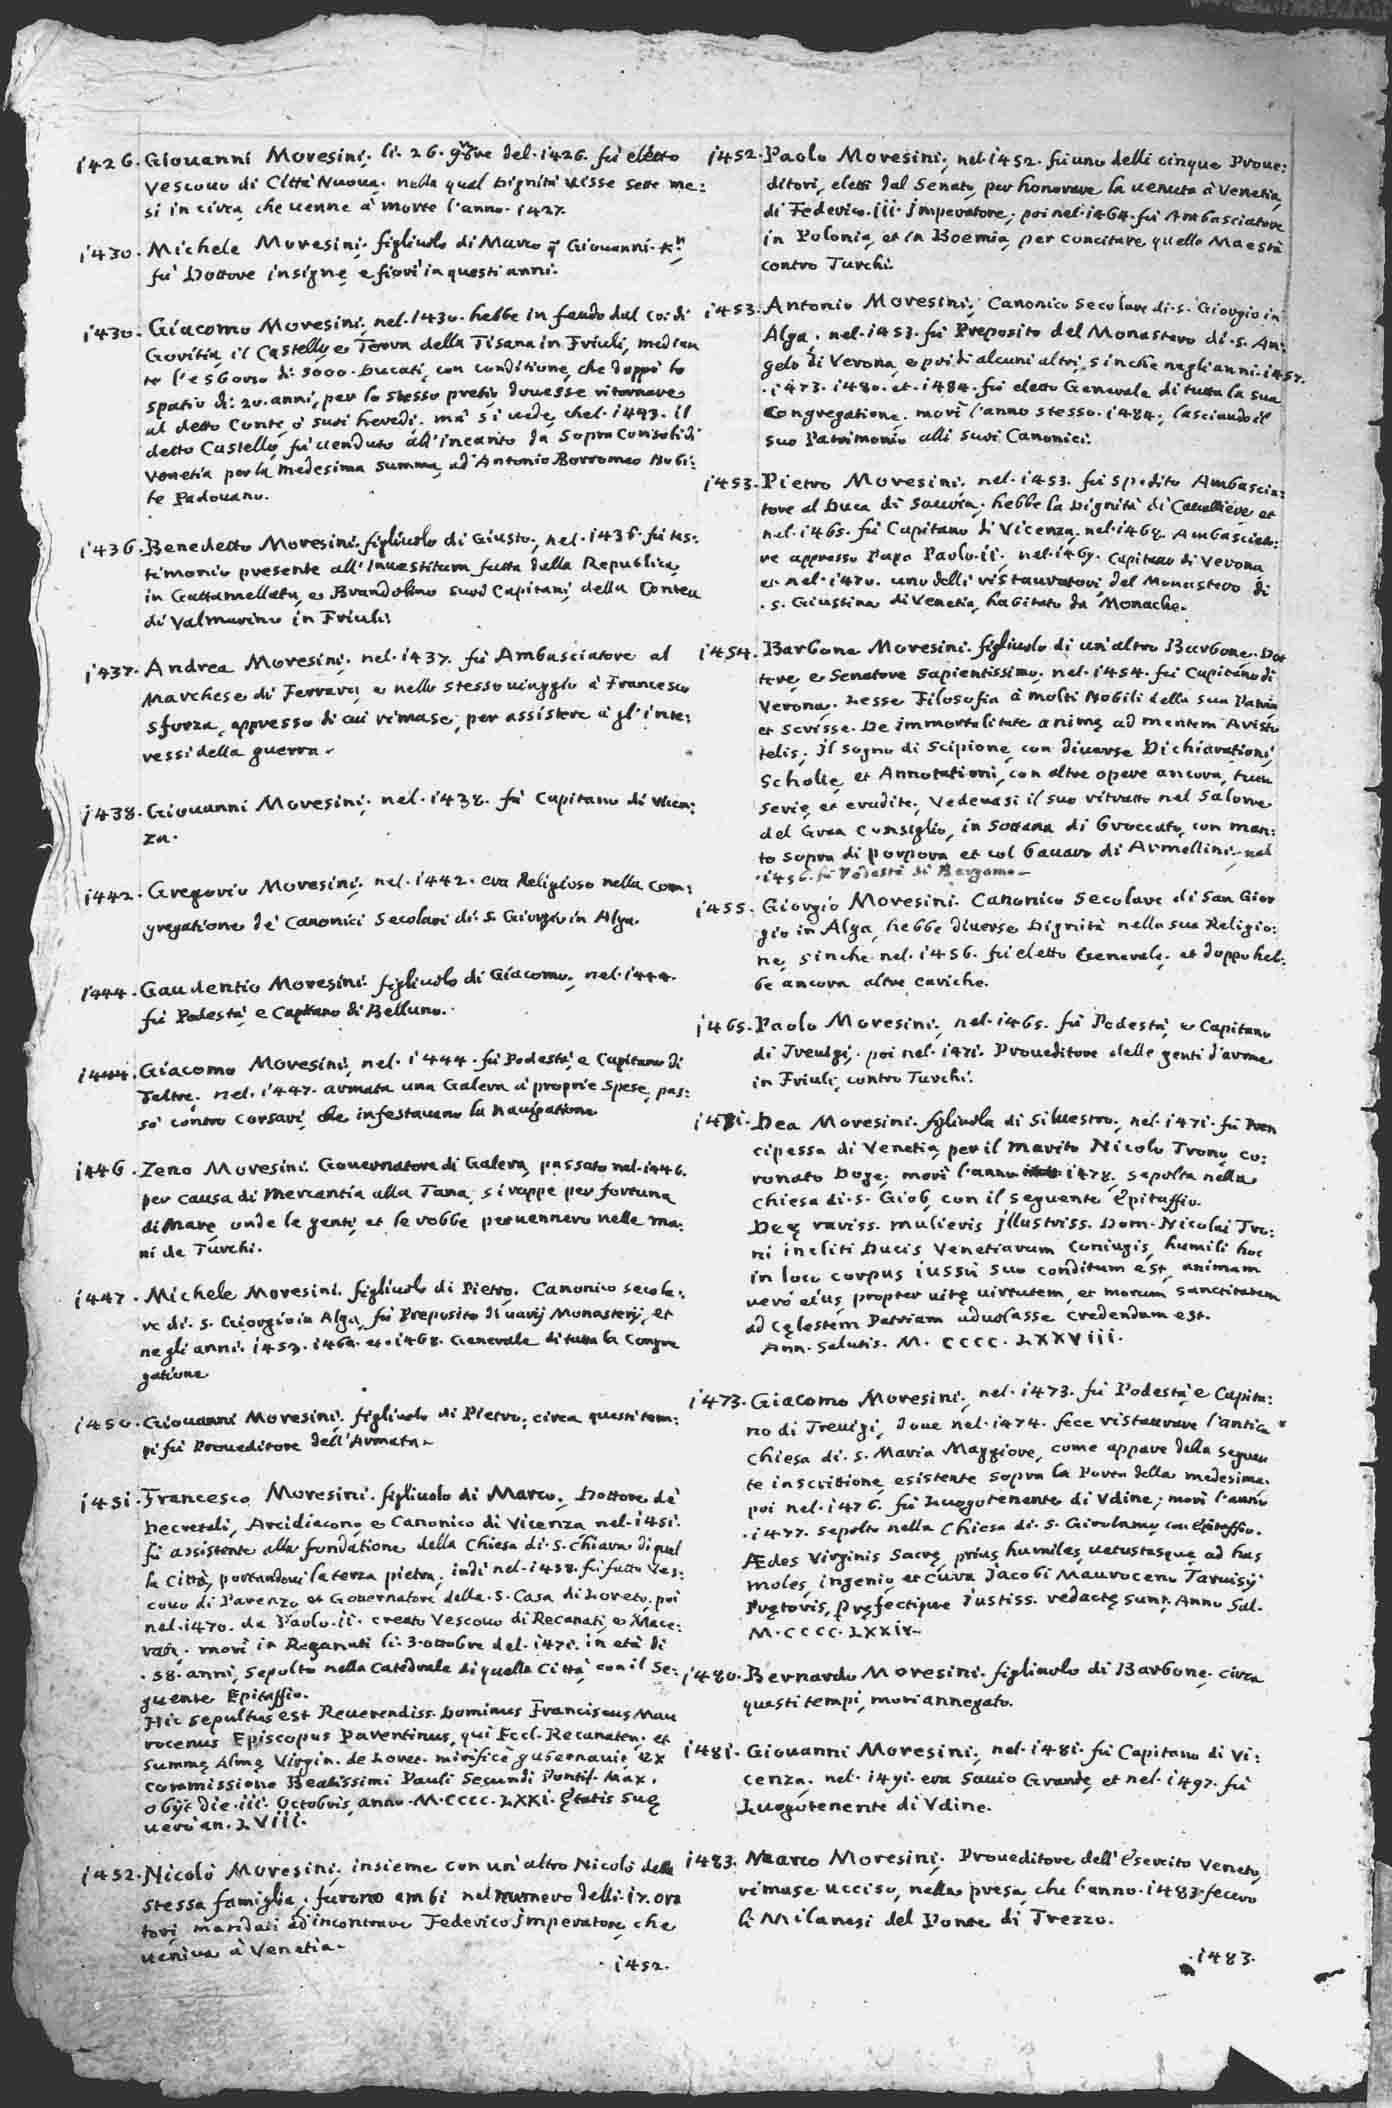 1426. Giouanni Moresini; li. 26. 9bre del. 1426. fù eletto
Vescouo di Città Nuoua. nella qual Dignità uisse sette me:
si in circa, che uenne à morte l'anno. 1427.
1430. Michele Moresini; figliuolo di Marco q. Giouanni. Kr.
fù Dottore insigne, e fiorì in questi anni.
1430. Giacomo Moresini; nel. 1430. hebbe in feudo dal Co: di
Goritia, il Castello, e Terra della Tisana in Friuli, median
te l'esborso di 9000. Ducati, con conditione, che doppò lo
spatio di: 20. anni, per lo stesso pretio douesse ritornare
al detto Conte, ò suoi heredi. mà si uede, che l. 1443. il
detto Castello, fù uenduto all'incanto da Sopra Consoli di
Venetia per la medesima summa, ad Antonio Borromeo Nobi:
le Padouano.
1436. Benedetto Moresini. figliuolo di Giusto; nel. 1436. fù tes:
timonio presente all'Inuestitura fatta dalla Republica,
in Gattamellata, e Brandolino suoi Capitani, della Contea
di Valmarino in Friuli.
1437. Andrea Moresini; nel. 1437. fù Ambasciatore al
Marchese di Ferrara, e nello stesso uiaggio à Francesco
Sforza, appresso di cui rimase, per assistere à gl'inte:
ressi della guerra.
1438. Giouanni Moresini; nel. 1438. fù Capitano di Vicen:
za.
1442. Gregorio Moresini; nel. 1442. era Religioso nella Con:
gregatione de' Canonici Secolari di. S. Giorgio in Alga.
1444. Gaudentio Moresini. figliuolo di Giacomo; nel. 1444.
fù Podestà e Capitano di Belluno.
1444. Giacomo Moresini; nel. 1444. fù Podestà, e Capitano di
Feltre. nel. 1447. armata una Galera à proprie spese, pas:
sò contro Corsari, che infestauano la nauigatione
1446. Zeno Moresini. Gouernatore di Galera, passato nel. 1446.
per causa di mercantia alla Tana, si ruppe per fortuna
di Mare, onde le genti, et le robbe peruennero nelle ma:
ni de Turchi.
1447. Michele Moresini. figliuolo di Pietro. Canonico secola:
re di. S. Giorgio in Alga, fù Preposito di uarij Monasterij, et
negli anni. 1453. 1462. et. 1468. Generale di tutta la Congre
gatione
1450. Giouanni Moresini; figliuolo di Pietro; circa questi tem:
pi fù Proueditore dell'Armata.
1451. Francesco Moresini. figliuolo di Marco; Dottore de'
Decretali, Arcidiacono, e Canonico di Vicenza, nel. 1451.
fù assistente alla fondatione della Chiesa di. S. Chiara di quel
la Città, portandoui la terza pietra; indi nel. 1458. fù fatto Ves:
couo di Parenzo, et Gouernatore della. S. Casa di Loreto, poi
nel. 1470. da Paolo. ii. creato Vescouo di Recanati, e Mace:
rata. morì in Reganati li. 3. ottobre del. 1471. in età di
. 58. anni, sepolto nella Catedrale di quella Città con il se:
guente Epitaffio.
Hic sepultus est Reuerendiss. Dominus Franciscus Mau
rocenus Episcopus Parentinus, qui Eccl. Recanaten. et
summę Almę Virgin. de Loret. mirificè gubernauit, ex
commissione Beatissimi Pauli Secundi Pontif. Max.
obijt die. iii. Octobris, anno. M. CCCC. LXXI. Ętatis suę
uerò an. LViii.
1452. Nicolò Moresini; insieme con un altro Nicolò della
stessa famiglia; furono ambi nel numero delli. 15. ora
tori, mandati ad incontrare Federico Imperatore, che
ueniua à Venetia.
. 1452.
1452. Paolo Moresini; nel. 1452. fù uno delli cinque Proue:
ditori, eletti dal Senato, per honorare la uenuta à Venetia,
di Federico. iii. Imperatore; poi nel. 1464. fù Ambasciatore
in Polonia, et in Boemia, per concitare quelle Maestà
contro Turchi.
1453. Antonio Moresini; Canonico Secolare di. S. Giorgio in
Alga. nel. 1453. fù Preposito del Monastero di. S. An:
gelo di Verona, e poi di alcuni altri, sinche negli anni. 1457.
. 1473. 1480. et. 1484. fù eletto Generale di tutta la sua
Congregatione. morì l'anno stesso. 1484; lasciando il
suo Patrimonio alli suoi Canonici.
1453. Pietro Moresini. nel. 1453. fù spedito Ambascia:
tore al Duca di Sauoia. hebbe la Dignità di Caualliere et
nel. 1465. fù Capitano di Vicenza, nel. 1468. Ambasciato:
re appresso Papa Paolo. ii; nel. 1469. Capitano di Verona
et nel. 1470. uno delli ristauratori, del Monastero di
. S. Giustina di Venetia, habitato da Monache.
1454. Barbone Moresini. figliuolo di un'altro Barbone. Dot
tore, e Senatore Sapientissimo. nel. 1454. fù Capitano di
Verona. Lesse Filosofia à molti Nobili della sua Patria
et scrisse. De immortalitate animę ad mentem Aristo
telis; il sogno di Scipione, con diuerse Dichiarationi,
Scholie, et Annotationi, con altre opere ancora, tutte
serie, et erudite; Vedeuasi il suo ritratto nel Salone
del Gran Consiglio, in Sottana di broccato, con man:
to sopra di porpora et col bauaro di Armellini. nel
. 1456. fù Podestà di Bergamo.
1455. Giorgio Moresini. Canonico Secolare di San Gior
gio in Alga, hebbe diuerse Dignità nella sua Religio:
ne, sinche nel. 1456. fù eletto Generale; et doppo heb:
be ancora altre cariche.
1465. Paolo Moresini; nel. 1465. fù Podestà, e Capitano
di Treuigi; poi nel. 1471. Proueditore delle genti d'arme
in Friuli, contro Turchi.
1471. Dea Moresini. figliuola di Siluestro; nel. 1471. fù Pren
cipessa di Venetia, per il marito Nicolò Trono, co:
ronato Doge; morì l'anno 1478. sepolta nella
Chiesa di. S. Giob, con il seguente Epitaffio.
Deę rariss. mulieris Illustriss. Dom. Nicolai Tro:
ni incliti Ducis Venetiarum Coniugis, humili hoc
in loco corpus iussù suo conditum est, animam
uerò eius, propter uitę uirtutem, et morum sanctitatem
ad cęlestem Patriam aduolasse credendum est.
Ann. Salutis. M. CCCC. LXXVIII.
1473. Giacomo Moresini; nel. 1473. fù Podestà, e Capita:
no di Treuigi, doue nel. 1474. fece ristaurare l'antica
Chiesa di. S. Maria Maggiore, come appare dalla seguen
te inscrittione esistente sopra la Porta della medesima.
poi nel. 1476. fù Luogotenente di Vdine; morì l'anno
. 1477. sepolto nella Chiesa di. S. Girolamo, con Epitaffio.
Ædes Virginis Sacrę, prius humiles, uetustasque, ad has
moles, ingenio, et cura Jacobi Mauroceno Taruisij
Prętoris, Pręfectique Justiss. redactę sunt, Anno Sal.
M. CCCC. LXXIV.
1480. Bernardo Moresini. figliuolo di Barbone, circa
questi tempi, morì annegato.
1481. Giouanni Moresini; nel. 1481. fù Capitano di Vi:
cenza; nel. 1491. era Sauio Grande, et nel. 1497. fù
Luogotenente di Vdine.
1483. Marco Moresini; Proueditore dell'Esercito Veneto,
rimase ucciso, nella presa, che l'anno. 1483. fecero
li Milanesi del Ponte di Trezzo.
. 1483.